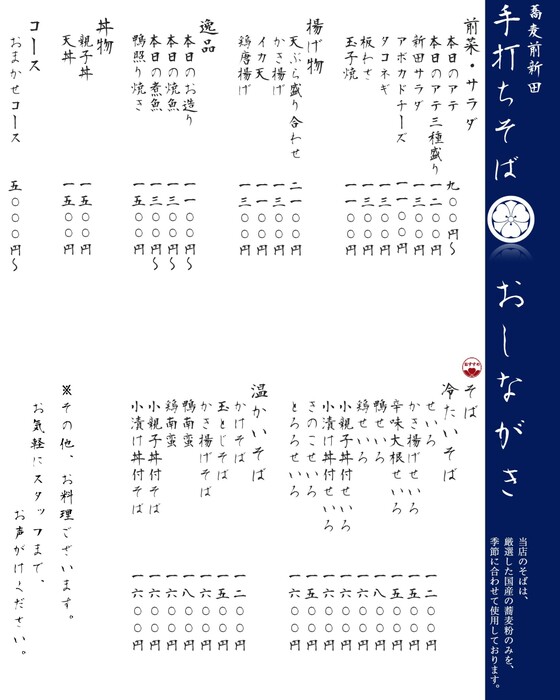 蕎麦前新田
手打ちそば
おしながき
当店のそばは、
厳選した国産の蕎麦粉のみを、
季節に合わせて使用しております。
前菜・サラダ
本日のアテ 九〇〇円〜
本日のアテ三種盛り 一二〇〇円
新田サラダ 一三〇〇円
アボカドチーズ 一一〇〇円
タコネギ 一三〇〇円
板わさ 一三〇〇円
玉子焼 一一〇〇円
揚げ物
天ぷら盛り合わせ 二一〇〇円
かき揚げ 一三〇〇円
イカ天 一一〇〇円
鶏唐揚げ 一三〇〇円
逸品
本日のお造り 一一〇〇円〜
本日の焼魚 一三〇〇円〜
本日の煮魚 一三〇〇円〜
鴨照り焼き 一五〇〇円
丼物
親子丼 一五〇〇円
天丼 一五〇〇円
コース
おまかせコース 五〇〇〇円〜
おすすめ
そば
冷たいそば
せいろ 一二〇〇円
かき揚げせいろ 一六〇〇円
辛味大根せいろ 一五〇〇円
鴨せいろ 一八〇〇円
鶏せいろ 一六〇〇円
小親子丼付せいろ 一六〇〇円
小漬け丼付せいろ 一六〇〇円
きのこせいろ 一五〇〇円
とろろせいろ 一六〇〇円
温かいそば
かけそば 一二〇〇円
玉とじそば 一五〇〇円
かき揚げそば 一六〇〇円
鴨南蛮 一八〇〇円
鶏南蛮 一六〇〇円
小親子丼付そば 一六〇〇円
小漬け丼付そば 一六〇〇円
※その他、お料理ございます。
お気軽にスタッフまで、
お声がけください。